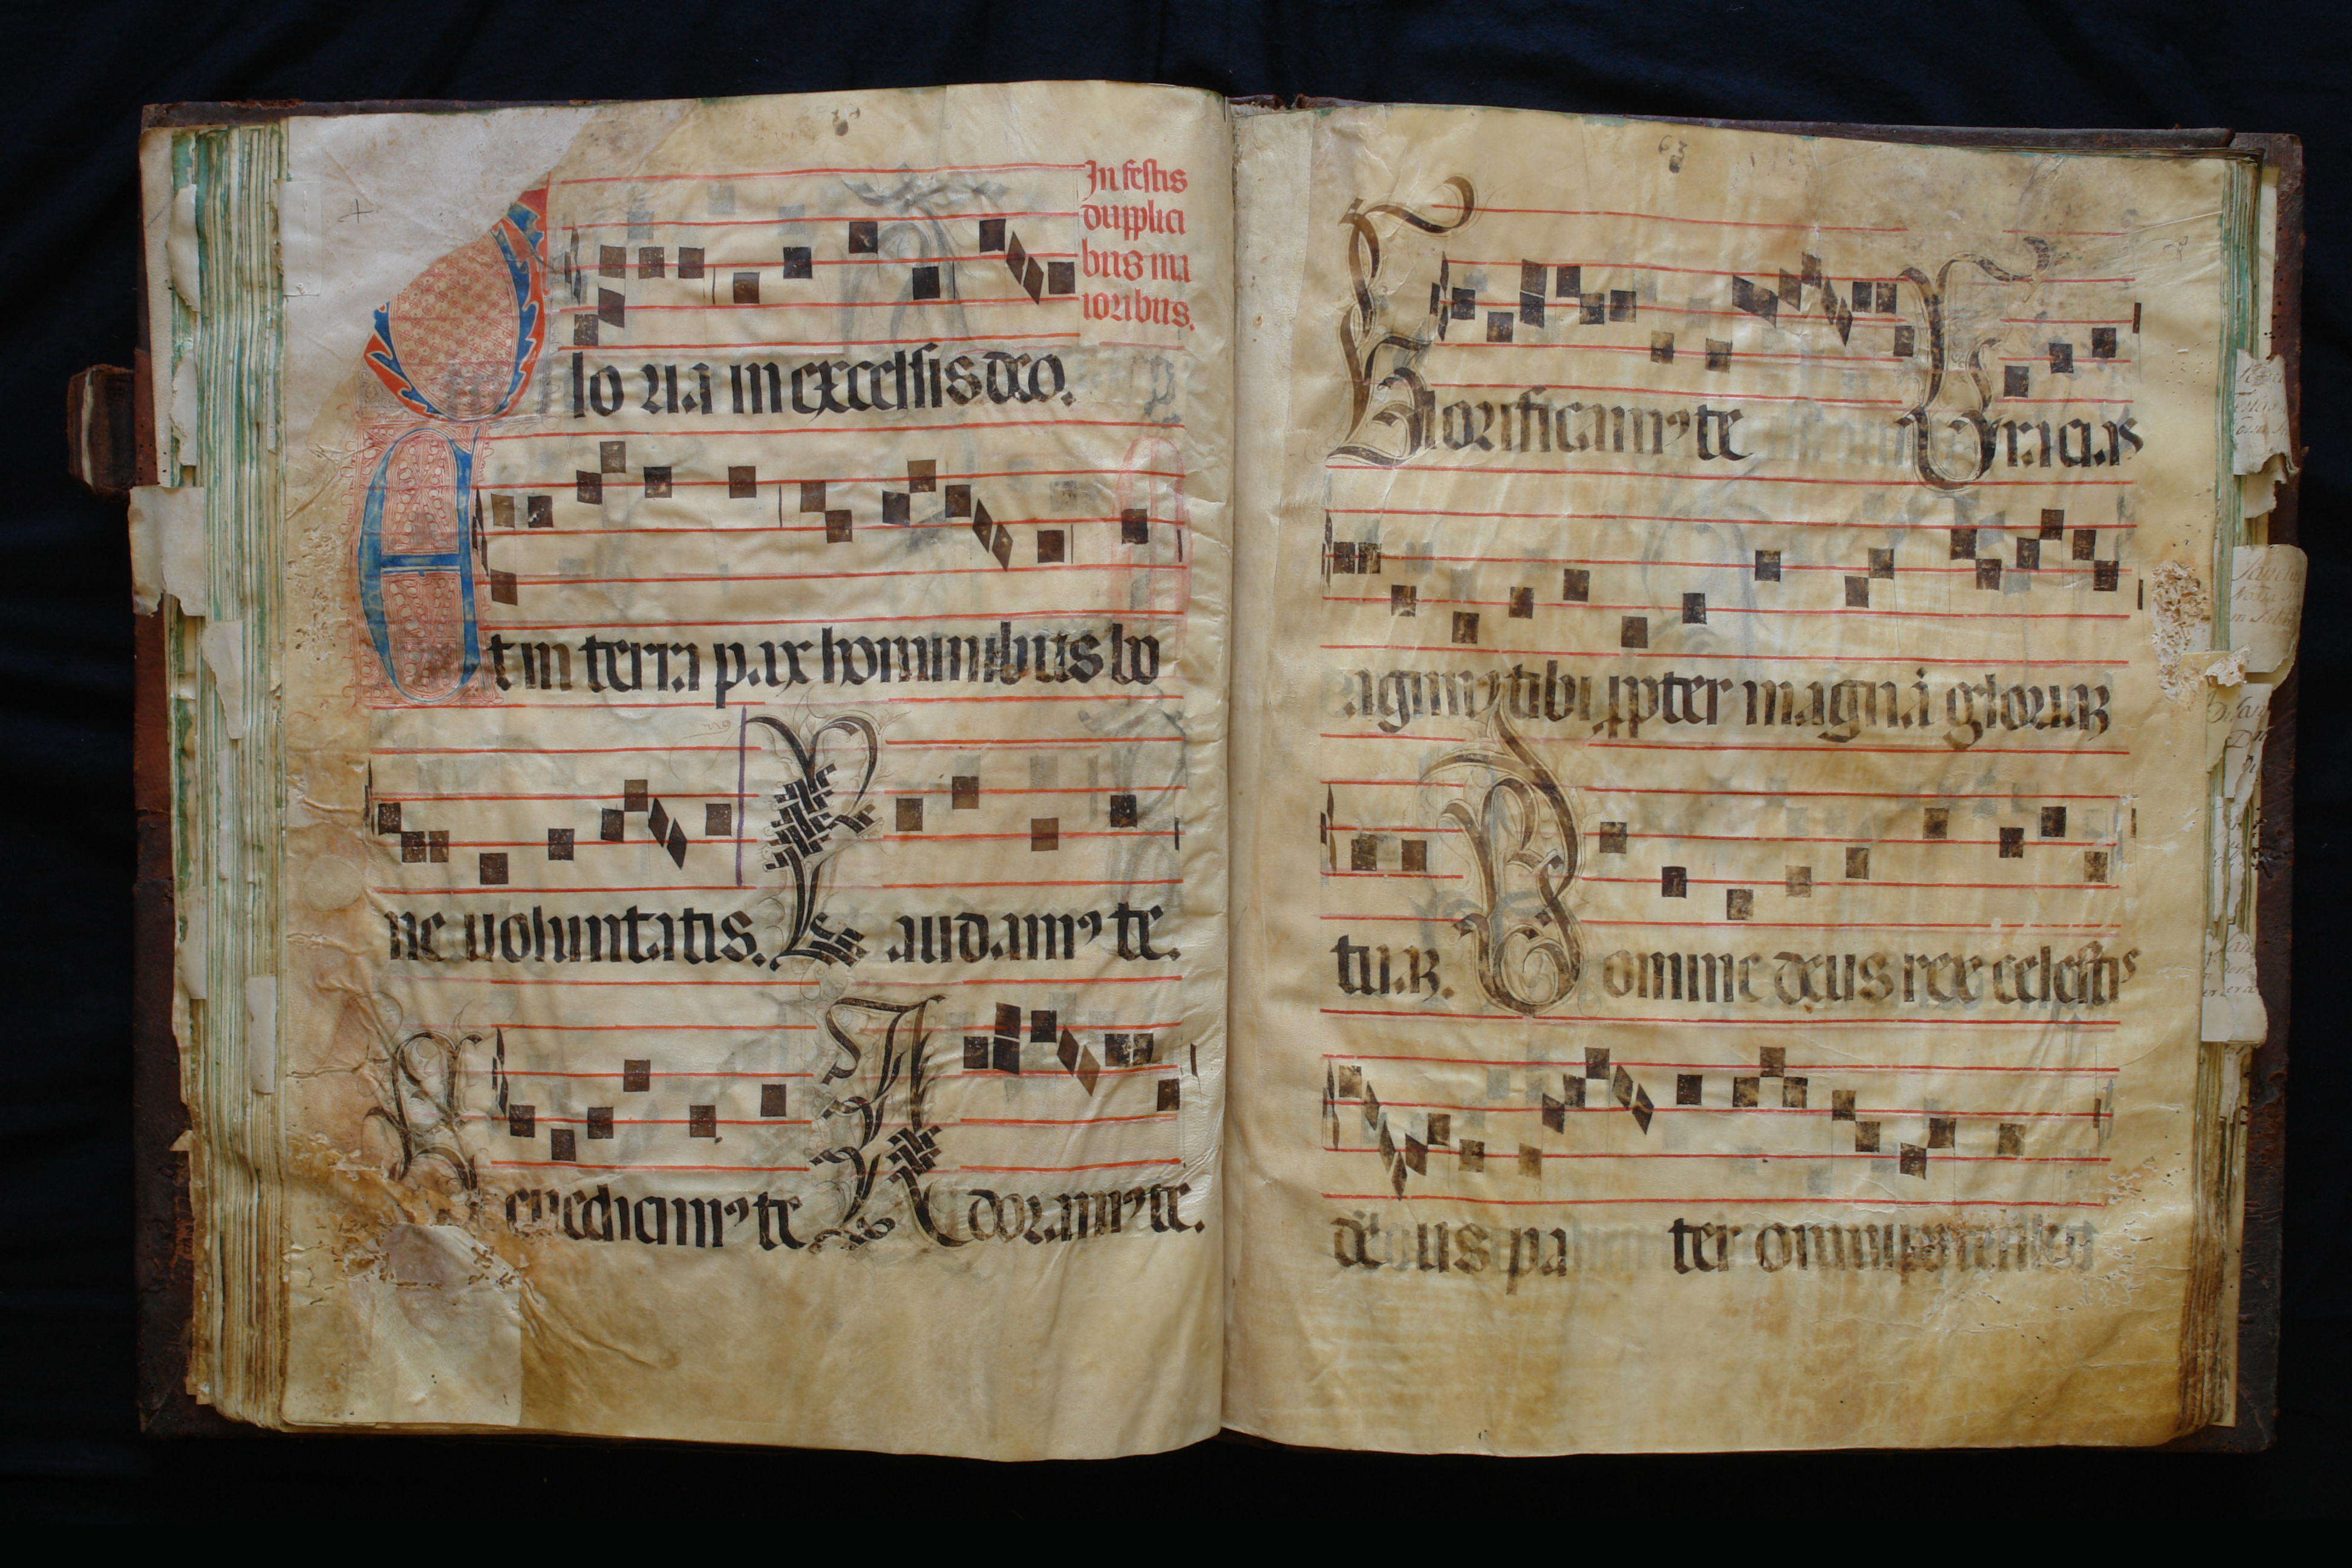 In festis
dupplici
bus ma
ioribus.
Glo ria in excelsis deo.
Et in terra pax hominibus bo
ne uoluntatis. Laudamꝰ te.
Benedicimꝰ te Adoramꝰ te.
Glorificamꝰ te Gracias
agimꝰ tibi ꝓpter magnā gloriaꝫ
tuaꝫ. Domine deus rex celestis
deus pa ter omnipotens